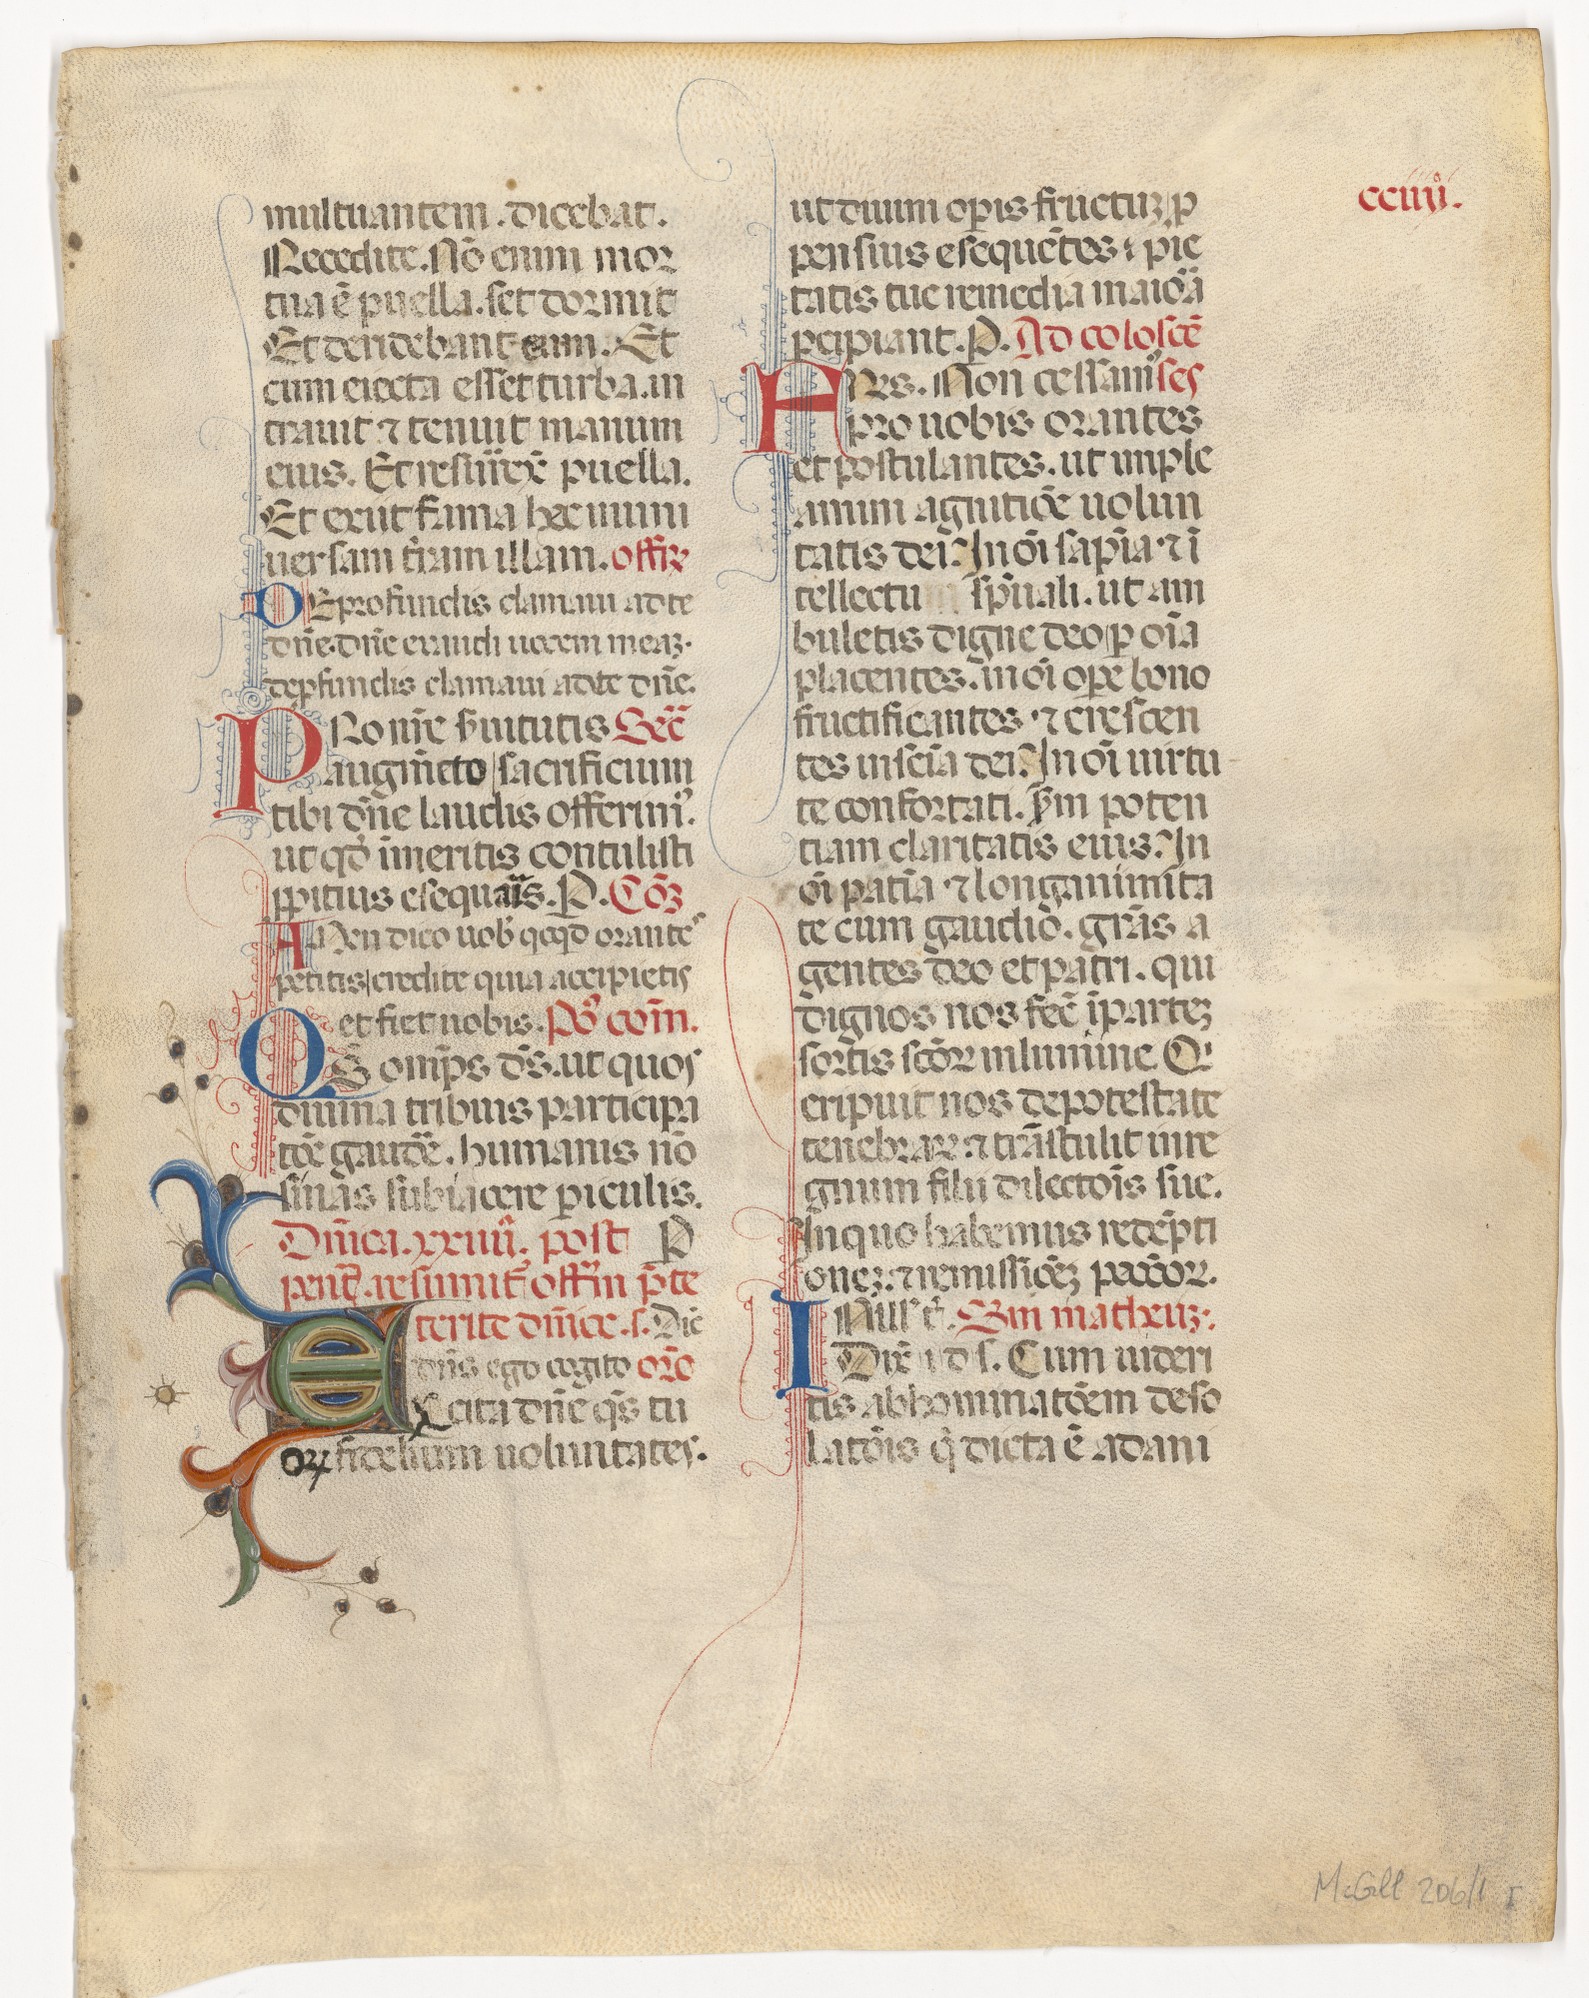 multuantem. dicebat.
Recedite. Nō enim mor
tua ē puella. set dormit
Et deridebant eum. Et
cum eiecta esset turba. in
trauit ⁊ tenuit manum
eius. Et resurrex̄ puella.
Et exiit fama hec in uni
uersam t̄ram illam. offr̄
DE profundis clamaui ad te
dn̄e. dn̄e exaudi uocem meaȝ.
de ꝓfundis clamaui ad te dn̄e.
PRo nr̄e s̄uitutis Sec̄
augm̄cto sacrificium
tibi dn̄e laudis offerim᾿.
ut qd̄ īmeritis contulisti
ꝓpitius exequaris. P. Cōȝ
AMen dico uob̄ qcqd orante᾿
petitis credite quia accipietis
et fiet uobis. Pō com̄.
QS om̄ps d̄s. ut quos
diuina tribuis participa
tōe gaud̄e. humanis nō
sinas subiacere ꝑiculis.
Dn̄ica. xxiiii. post P
pent̄. resumit᾿ offm̄ p̄te
terite dn̄ice. s. Dic̄
dn̄s ego cogito oro
EXcita dn̄e qs̄ tu
oꝝ fidelium uoluntates.
cciiii.
ut diuini oꝑis fructuȝ ꝓ
pensius exequētes ⁊ pie
tatis tue remedia maiōa
ꝑcipiant. P. Ad colocē
FRēs. Non cessam᾿ ses
pro uobis orantes
et postulantes. ut imple
amini agnitiōe uolun
tatis dei. In oī sapīa ⁊ ī
tellectu sp̄uali. ut am
buletis digne deo ꝑ oīa
placentes. in oī oꝑe bono
fructificantes ⁊ crescen
tes in scīa dei. In oī uirtu
te confortati. s̄m poten
tiam claritatis eius. In
oī patīa ⁊ longanimita
te cum gaudio. grās a
gentes deo et patri. qui
dignos nos fec̄ ī parteȝ
sortis sc̄oꝝ in lumine. Q̄
eripuit nos de potestate
tenebraꝝ ⁊ trāstulit in re
gnum filii dilectōis sue.
In quo habemus redēpti
oneȝ. ⁊ remissiōeȝ peccōꝝ.
IN ill᾿ t̄. Sm̄ matheuȝ.
Dix̄ i d s. Cum uideri
tis abhominatōem deso
latōis q̄ dicta ē a dani
McGill 206/1 r